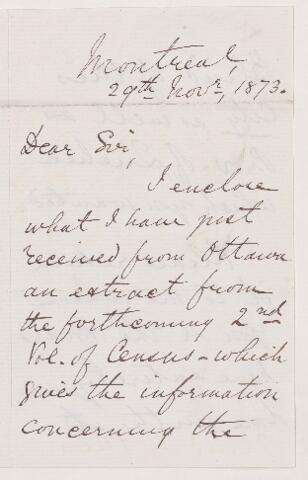 Montreal,
29th Novr, 1873.
Dear Sir,
I enclose
what I have just
received from Ottawa
an extract from
the forthcoming 2nd
Vol. of Census - which
gives the information
concerning the